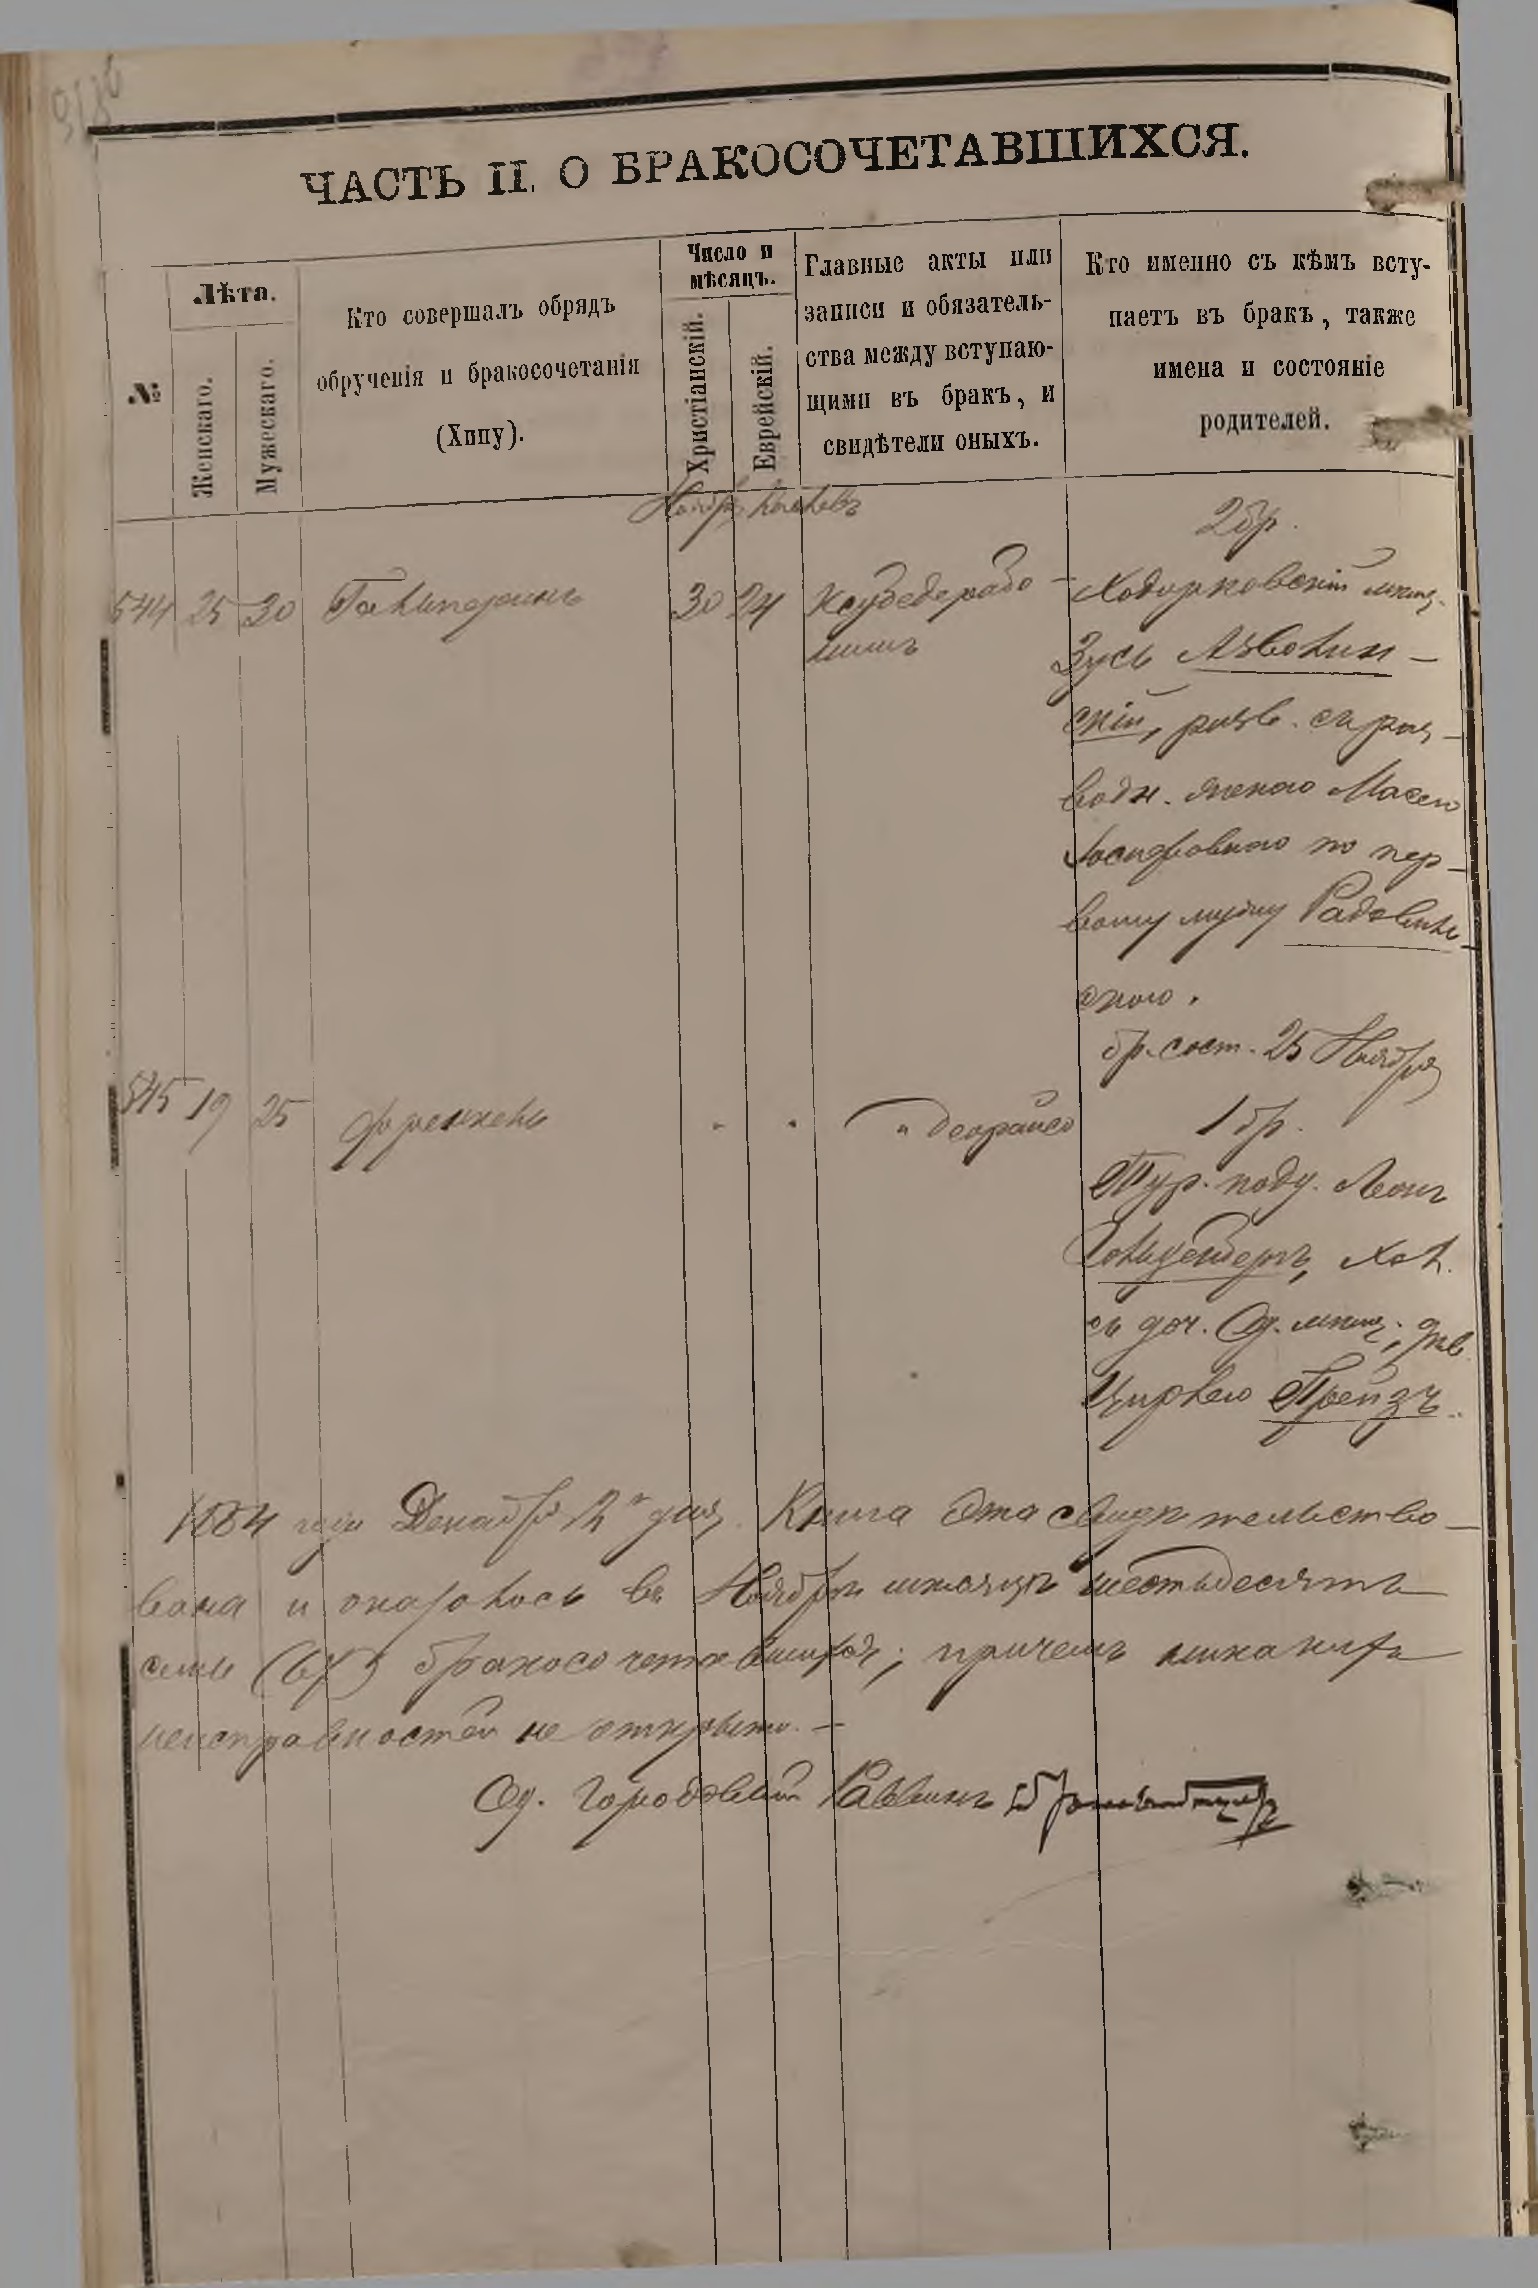 ЧАСТЬ II. О БРАКОСОЧЕТАВШИХСЯ.
№
Лѣта.
Женскаго.
Мужескаго.
Кто совершалъ обрядъ
обрученія и бракосочетанія
(Хипу).
Число и
мѣсяцъ.
Христіанскій.
Еврейскій.
Главные акты или
записи и обязатель-
ства между вступаю-
щими въ бракъ, и
свидѣтели оныхъ.
Кто именно съ кѣмъ всту-
паетъ въ бракъ, также
имена и состояніе
родителей.
Ноябрь Кислевъ
2 бр.
544 25 30 Гальперинъ 30 24
Ходорковскій мѣщ.
Зусь
скій, разв. съ раз-
водн. женою
Іосифовною по пер-
вому мужу Радовиль-
скою.
бр. сост. 25 Ноября
545 19 25 Френкель " " "
1 бр.
Тур. подд. Леонъ
Гольденбергъ, хол.
съ доч. Од. мѣщ., дѣв.
Цирлею Прейзъ.
1884 года Декабря 2го дня. Книга эта свидѣтельство-
вана и оказалось въ Ноябрѣ мѣсяцѣ шестьдесятъ
семь (67) бракосочетавшихся; причемъ никакихъ
неисправностей не открыто. —
Од. Городовой Раввинъ